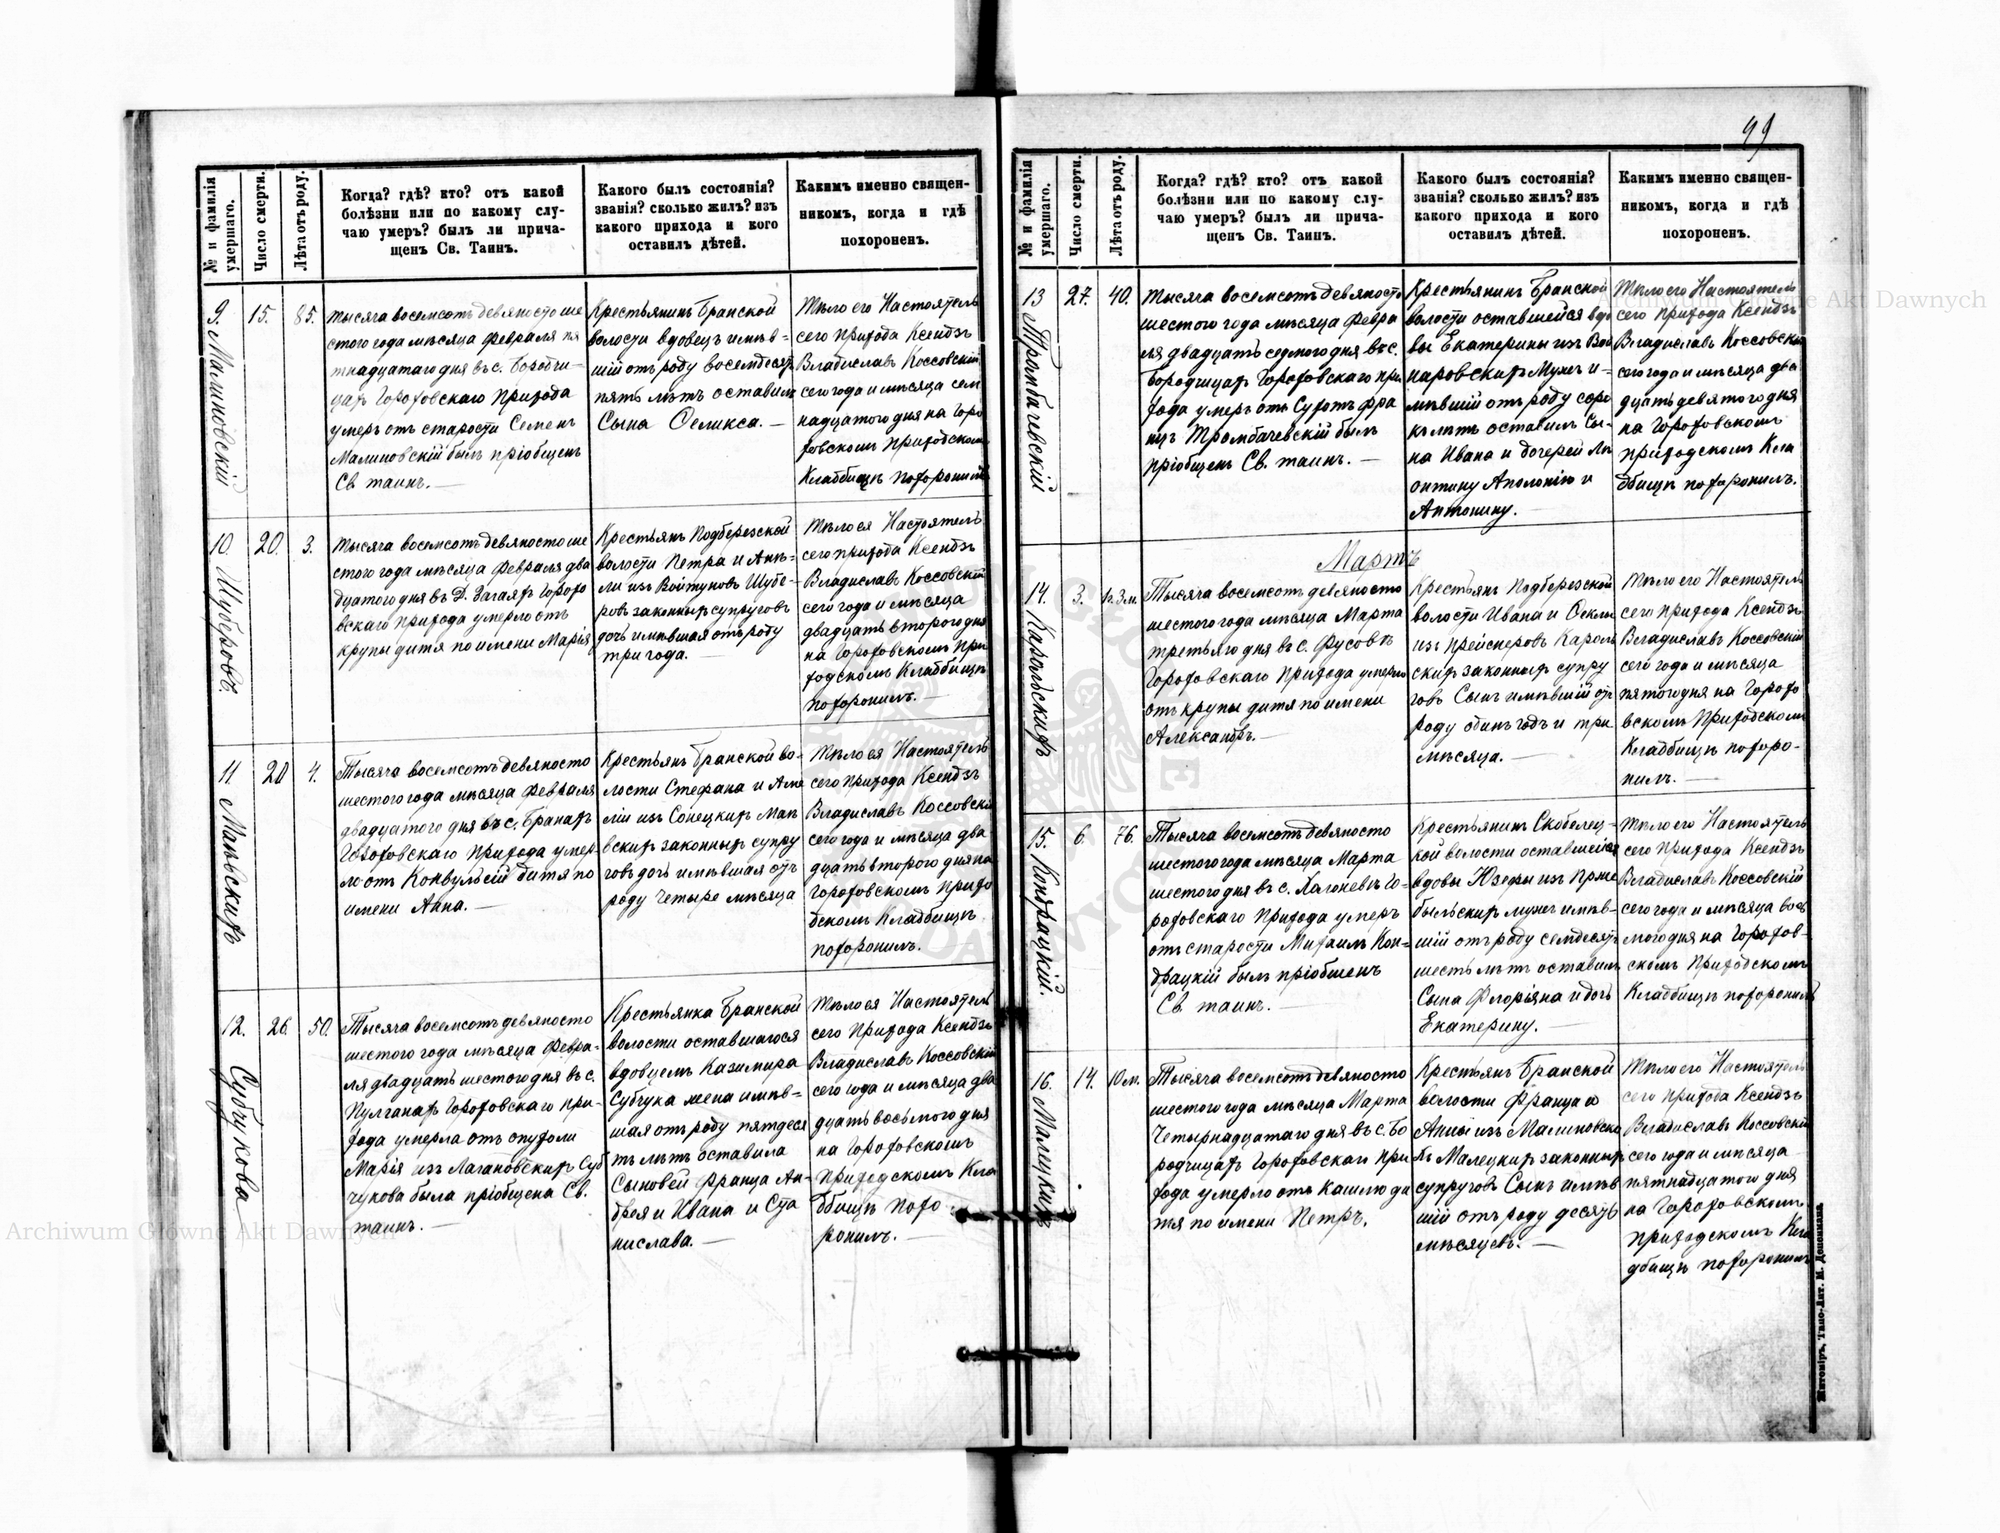 99
№ и фамилія умершаго.
Число смерти.
Лѣта отъ роду.
Когда? гдѣ? кто? отъ какой
болѣзни или по какому слу-
чаю умеръ? былъ ли прича-
щенъ Св. Таинъ.
Какого былъ состоянія?
званія? сколько жилъ? изъ
какого прихода и кого
оставилъ дѣтей.
Какимъ именно священ-
никомъ, когда и гдѣ
похороненъ.
9. Малиновскій
15.
85.
Тысяча восемсотъ девяносто ше
стого года мѣсяца Февраля пя
тнадцатаго дня въ с. Бородчи-
цахъ Гороховскаго Прихода
умеръ отъ старости Семенъ
Малиновскій былъ пріобщенъ
Св. таинъ. —
Крестьянинъ Бранской
волости вдовецъ имѣв-
шій отъ роду восемдесятъ
пять лѣтъ оставилъ
Сына Феликса. —
Тѣло его Настоятель
сего прихода Ксендзъ
Владиславъ Коссовскій
сего года и мѣсяца сем
надцатого дня на Горо
ховскомъ Приходскомъ
Кладбищѣ похоронилъ
10. Шуберовъ.
20.
3.
Тысяча восемсотъ девяносто ше
стого года мѣсяца Февраля два
дцатого дня въ Д. Загаяхъ Горохо
вскаго прихода умерло отъ
крупы дитя по имени Марія
Крестьянъ Подберезской
волости Петра и Анѣ-
ли изъ Войтуновъ Шубе-
ровъ законныхъ супруговъ
дочь имѣвшая отъ роду
три года. —
Тѣло ея Настоятель
сего прихода Ксендзъ
Владиславъ Коссовскій
сего года и мѣсяца
двадцать второго дня
на Гороховскомъ При
ходскомъ Кладбищѣ
похоронилъ. —
11 Маньскихъ
20
4.
Тысяча восемсотъ девяносто
шестого года мѣсяца Февраля
двадцатого дня въ с. Бранахъ
Гороховскаго Прихода умер-
ло отъ Конвульсій дитя по
имени Анна. —
Крестьянъ Бранской во-
лости Стефана и Аме
ліи изъ Сонецкихъ Мань
вскихъ законныхъ супру
говъ дочь имѣвшая отъ
роду четыре мѣсяца
Тѣло ея Настоятель
сего прихода Ксендзъ
Владиславъ Коссовскій
сего года и мѣсяца два
дцать второго дня на
Гороховскомъ Прихо
дскомъ Кладбищѣ
похоронилъ. —
12. Субчукова
26.
50.
Тысяча восемсотъ девяносто
шестого года мѣсяца Февра-
ля двадцать шестого дня въ с.
Пулганахъ Гороховскаго при-
хода умерла отъ опухоли
Марія изъ Лагановскихъ Суб
чукова была пріобщена Св.
таинъ. —
Крестьянка Бранской
волости оставшагося
вдовцемъ Казимира
Субчука жена имѣв-
шая отъ роду пятдеся
тъ лѣтъ оставила
Сыновей Франца Ан-
дрея и Ивана и Ста
нислава. —
Тѣло ея Настоятель
сего Прихода Ксендзъ
Владиславъ Коссовскій
сего года и мѣсяца два
дцать восьмого дня
на Гороховскомъ
Приходскомъ Кла
дбищѣ похо
ронилъ. —
№ и фамилія умершаго.
Число смерти.
Лѣта отъ роду.
Когда? гдѣ? кто? отъ какой
болѣзни или по какому слу-
чаю умеръ? былъ ли прича-
щенъ Св. Таинъ.
Какого былъ состоянія?
званія? сколько жилъ? изъ
какого прихода и кого
оставилъ дѣтей.
Какимъ именно священ-
никомъ, когда и гдѣ
похороненъ.
13 Тромбачевскій
27.
40.
Тысяча восемсотъ девяносто
шестого года мѣсяца Февра
ля двадцать седмого дня въ с.
Бородчицахъ Гороховскаго при
хода умеръ отъ Сухотъ Фра
нцъ Тромбачевскій былъ
пріобщенъ Св. таинъ. —
Крестьянинъ Бранской
волости оставшейся вдо
вы Екатерины изъ Вой
наровскихъ Мужъ и-
мѣвшій отъ роду соро
къ лѣтъ оставилъ Сы-
на Ивана и дочерей Ле
онтину Аполонію и
Антонину. —
Тѣло его Настоятель
сего прихода Ксендзъ
Владиславъ Коссовскій
сего года и мѣсяца два
дцать девятого дня
на Гороховскомъ
приходскомъ Кла
дбищѣ похоронилъ.
Мартъ
14. Карольскихъ
3.
1г. 3м.
Тысяча восемсотъ девяносто
шестого года мѣсяца Марта
третьяго дня въ с. Фусовъ
Гороховскаго Прихода умерло
отъ крупы дитя по имени
Александръ. —
Крестьянъ Подберезской
волости Ивана и Феклы
изъ Прейснеровъ Кароль
скихъ законныхъ супру
говъ Сынъ имѣвшій отъ
роду одинъ годъ и три
мѣсяца. —
Тѣло его Настоятель
сего прихода Ксендзъ
Владиславъ Коссовскій
сего года и мѣсяца
пятого дня на Горохо
вскомъ Приходскомъ
Кладбищѣ похоро-
нилъ. —
15. Кондрацкій.
6.
76.
Тысяча восемсотъ девяносто
шестого года мѣсяца Марта
шестого дня въ с. Лагоневѣ Го-
роховскаго Прихода умеръ
отъ старости Михаилъ Кон-
драцкій былъ пріобщенъ
Св. таинъ. —
Крестьянинъ Скобелец-
кой волости оставшейся
вдовы Юзефы изъ Прже
быльскихъ мужъ имѣв-
шій отъ роду семдесятъ
шесть лѣтъ оставилъ
Сына Флоріяна и дочь
Екатерину. —
Тѣло его Настоятель
сего прихода Ксендзъ
Владиславъ Коссовскій
сего года и мѣсяца вось
мого дня на Горохов-
скомъ Приходскомъ
Кладбищѣ похоронилъ
16. Малецкихъ
14.
10м.
Тысяча восемсотъ девяносто
шестого года мѣсяца Марта
Четырнадцатаго дня въ с. Бо
родчицахъ Гороховскаго При
хода умерло отъ Кашлю ди
тя по имени Петръ.
Крестьянъ Бранской
волости Франца и
Анны изъ Малиновски
хъ Малецкихъ законныхъ
супруговъ Сынъ имѣв
шій отъ роду десять
мѣсяцевъ. —
Тѣло его Настоятель
сего Прихода Ксендзъ
Владиславъ Коссовскій
сего года и мѣсяца
пятнадцатого дня
на Гороховскомъ
приходскомъ Кла
дбищѣ похоронилъ
Житоміръ, Типо-Лит. М. Дененмана.
Archiwum Główne Akt Dawnych
Archiwum Główne Akt Dawnych